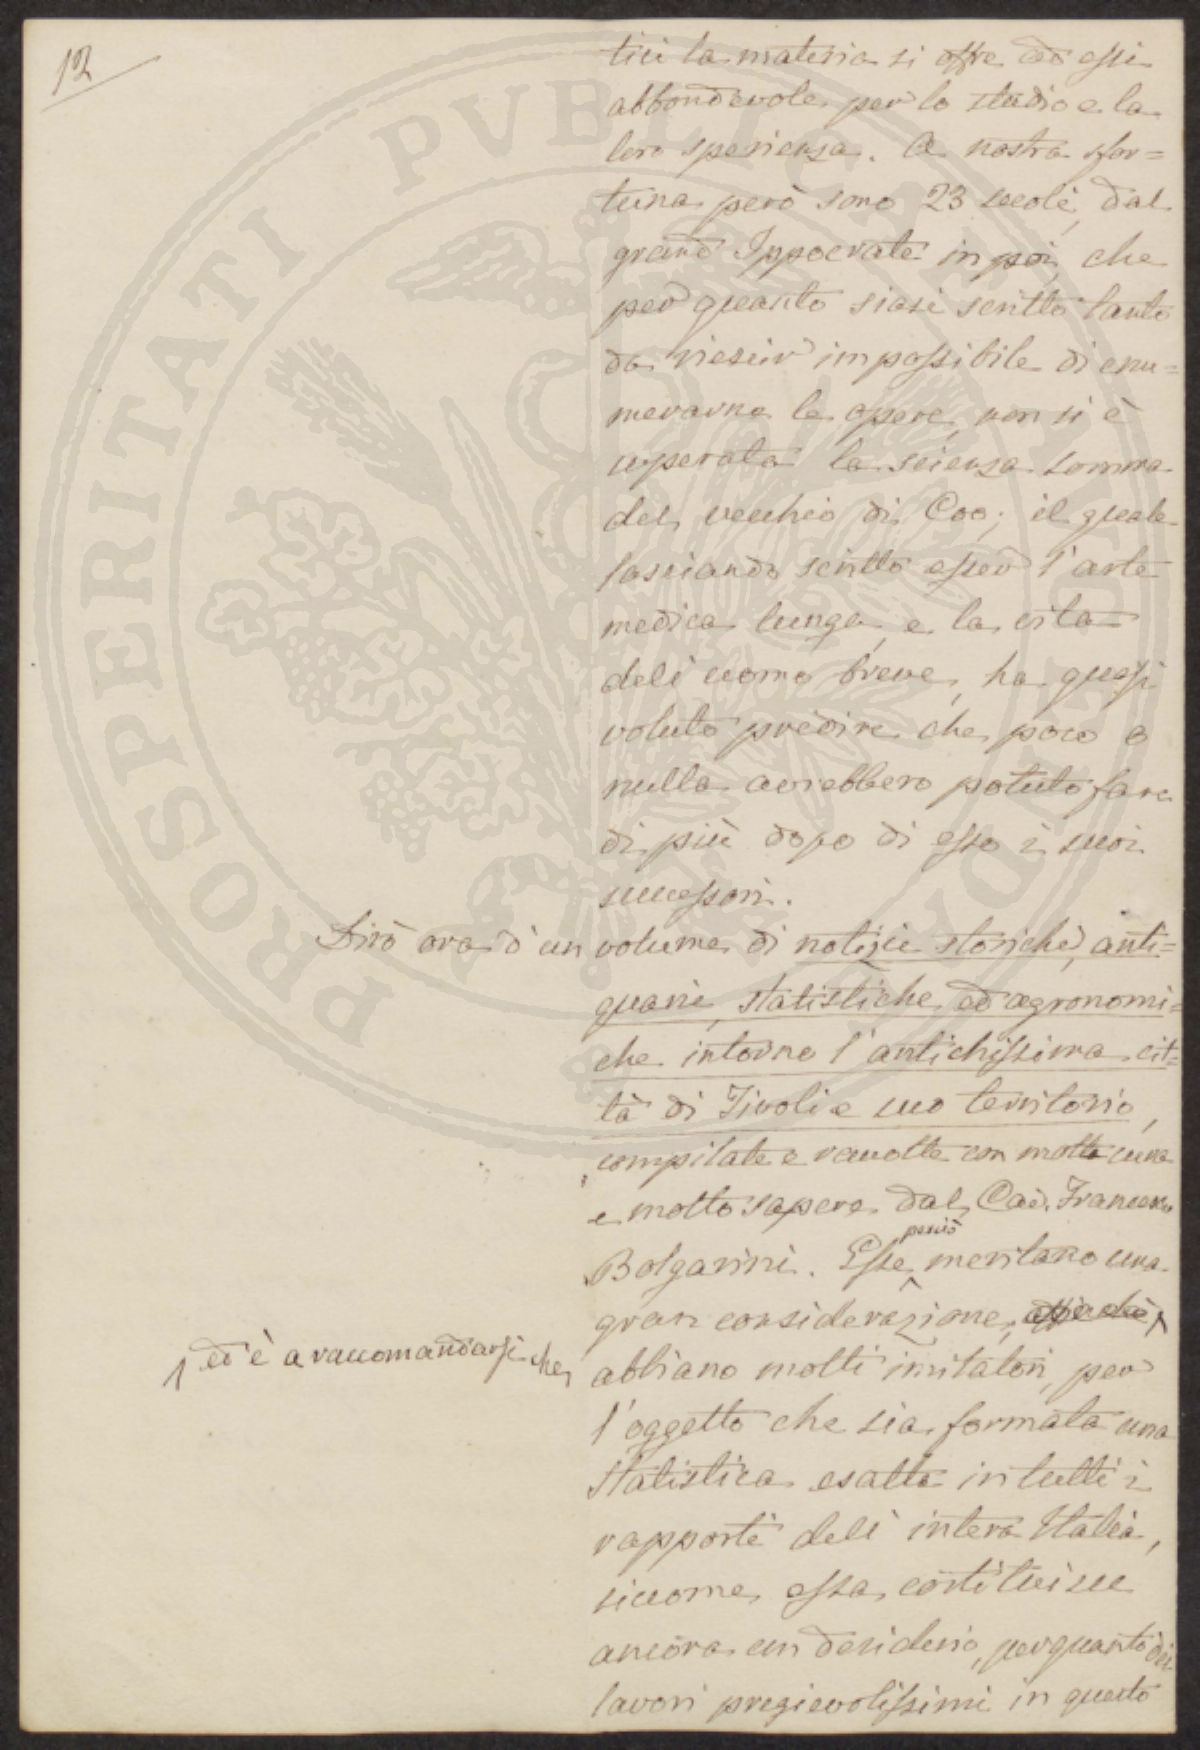 12
tici la materia si offre ad essi
abbondevole per lo studio e la
loro sperienza. A nostra sfor=
tuna però sono 23 secoli, dal
grand Ippocrate in poi, che
per quanto siasi scritto tanto
da riescir impossibile di enu=
merarne le opere, non si è
superata la scienza somma
del vecchio di Coo; il quale
lasciando scritto esser l'arte
medica lunga, e la vita
dell'uomo breve, ha quasi
voluto predire che poco o
nulla avrebbero potuto fare
di più dopo di esso i suoi
successori.
Dirò ora d'un volume di notizie storiche, anti=
quarie, statistiche, ed agronomi=
che intorno l'antichissima cit=
tà di Tivoli e suo territorio,
compilate e raccolte con molta cura
e molto sapere dal Cav. Francesco
Bolgarini. Esse perciò meritano una
gran considerazione,
ed è a raccomandarsi che
abbiano molti imitatori, per
l'oggetto che sia formata una
Statistica esatta in tutti i
rapporti dell'intera Italia,
siccome essa costituisce
ancora un desiderio, per quanto dei
lavori pregievolissimi in questo
PROSPERITATI PUBLICAE